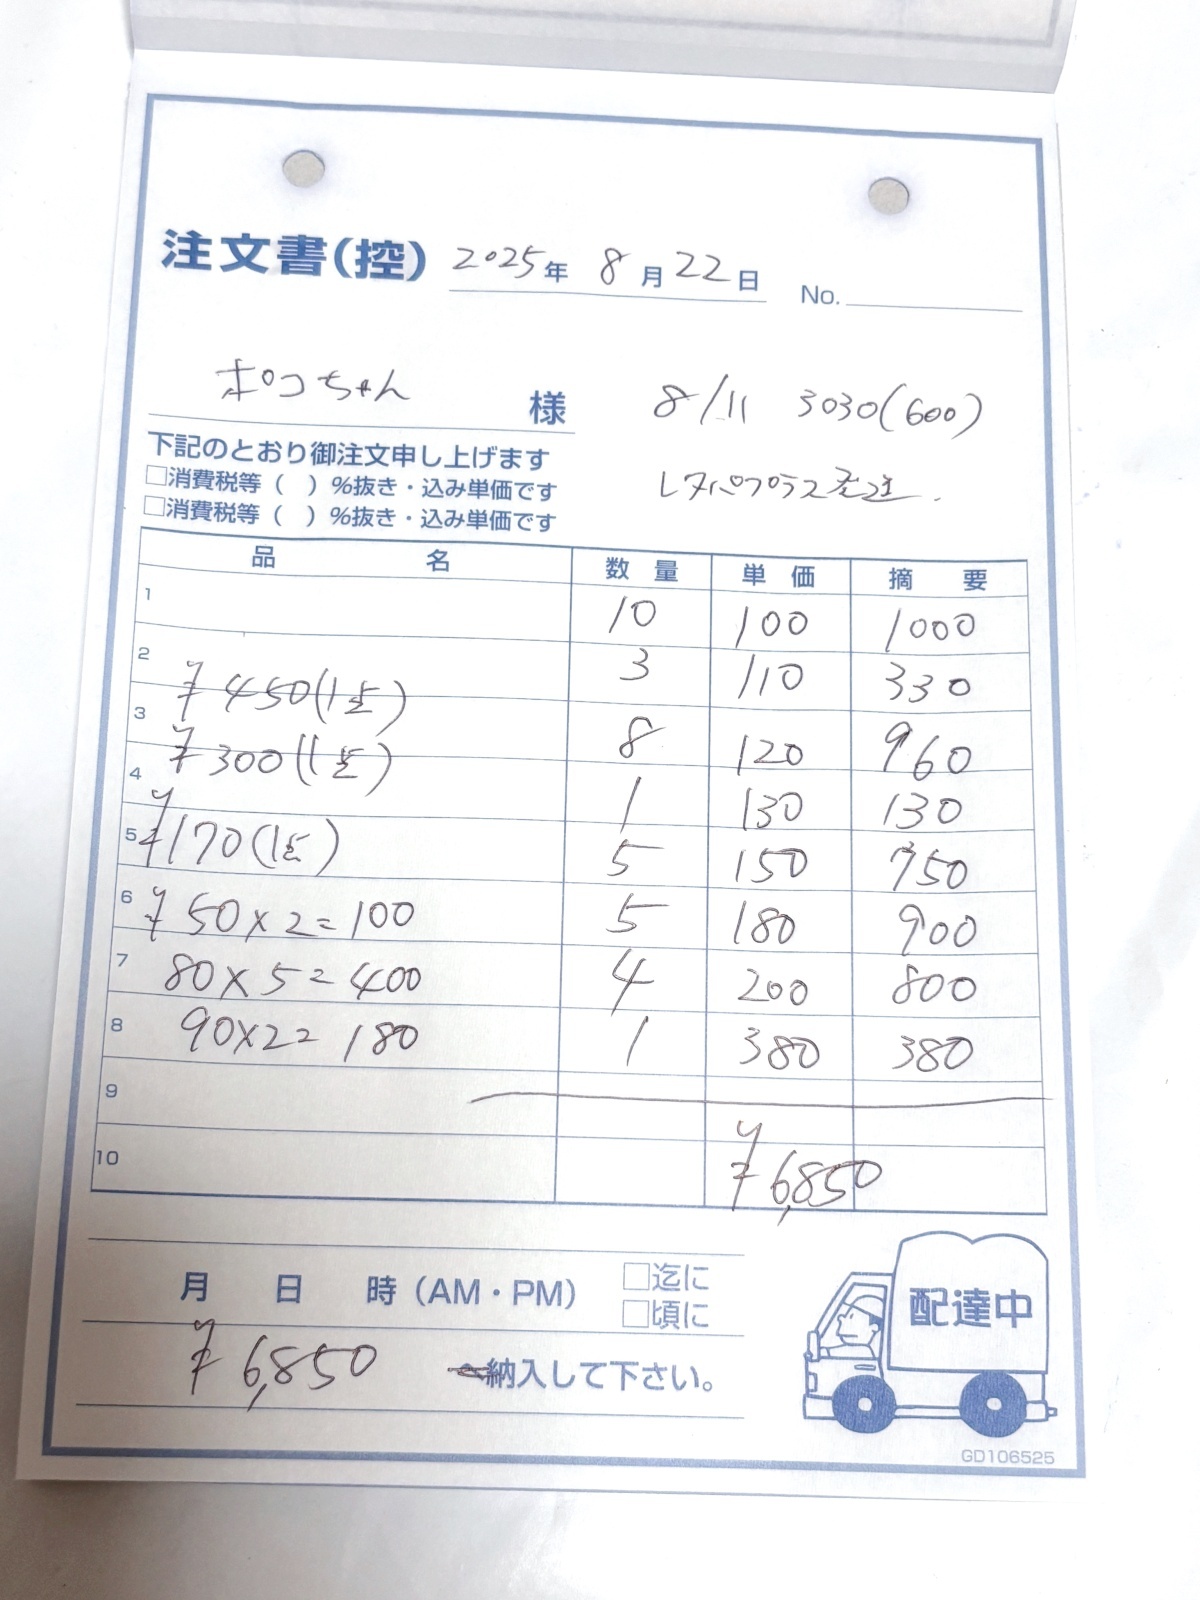 注文書(控) 2025年 8月22日 No.
ポコちゃん 様 8/11 3030(600)
下記のとおり御注文申し上げます
□消費税等( )%抜き・込み単価です レターパックプラス発送.
□消費税等( )%抜き・込み単価です
品 名 数 量 単 価 摘 要
1 10 100 1000
2 ¥450(1点) 3 110 330
3 ¥300(1点) 8 120 960
4 1 130 130
5 ¥170(1点) 5 150 750
6 ¥50×2=100 5 180 900
7 80×5=400 4 200 800
8 90×2=180 1 380 380
9
10 ¥6,850
月 日 時(AM・PM) □迄に
□頃に
¥6,850 納入して下さい。
配達中
GD106525